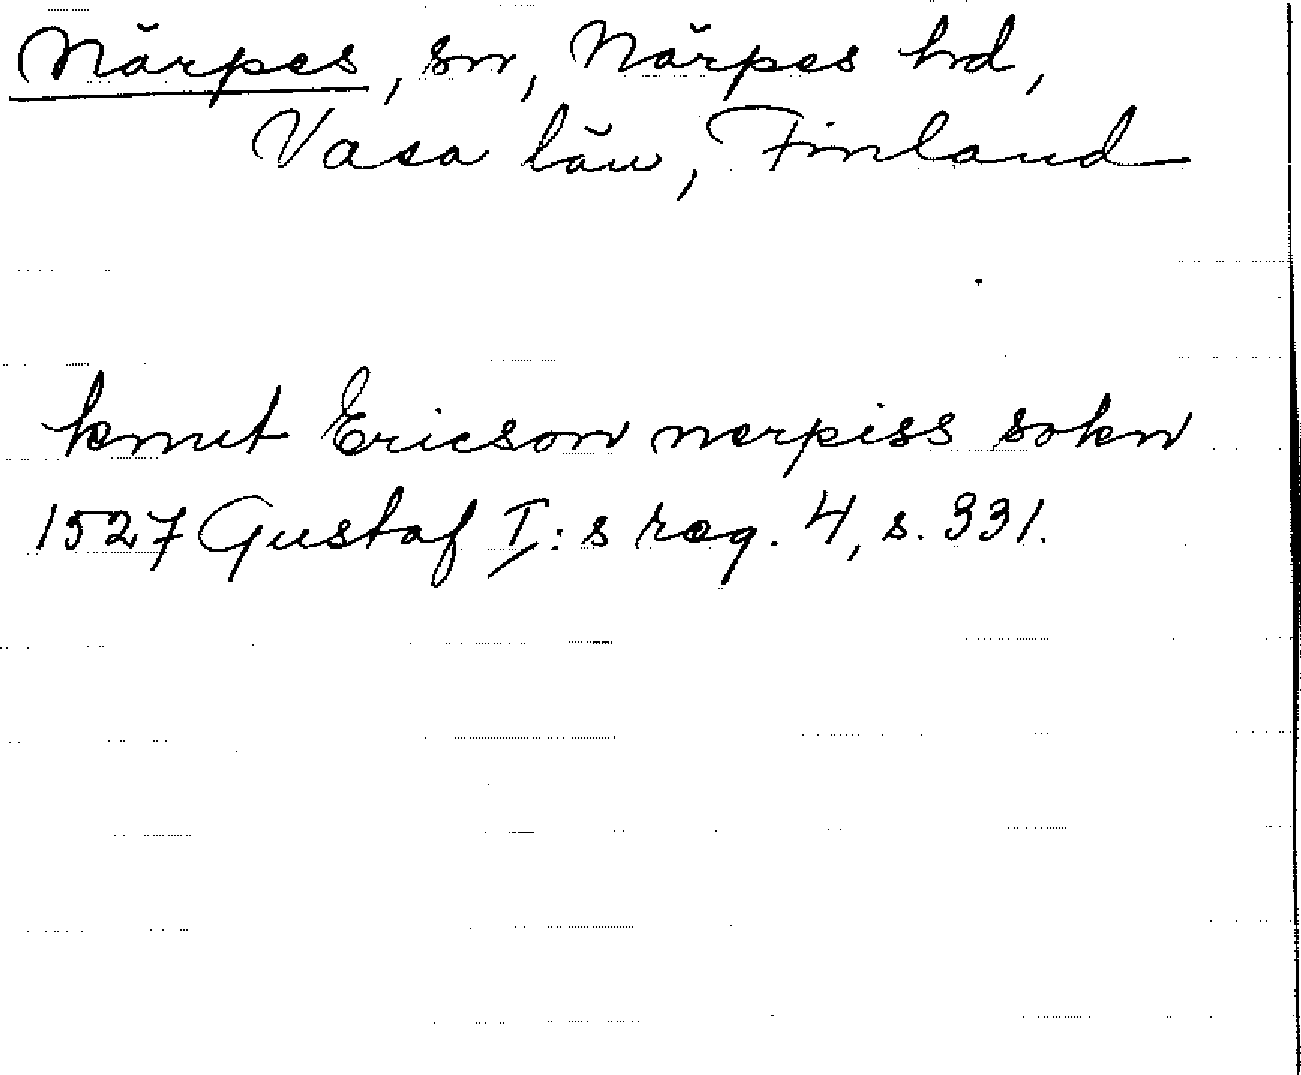 Närpes, sn, Närpes hd,
Vasa län, Finland
knut Ericson nerpiss sokn
1527 Gustaf I:s reg. 4, s. 331.